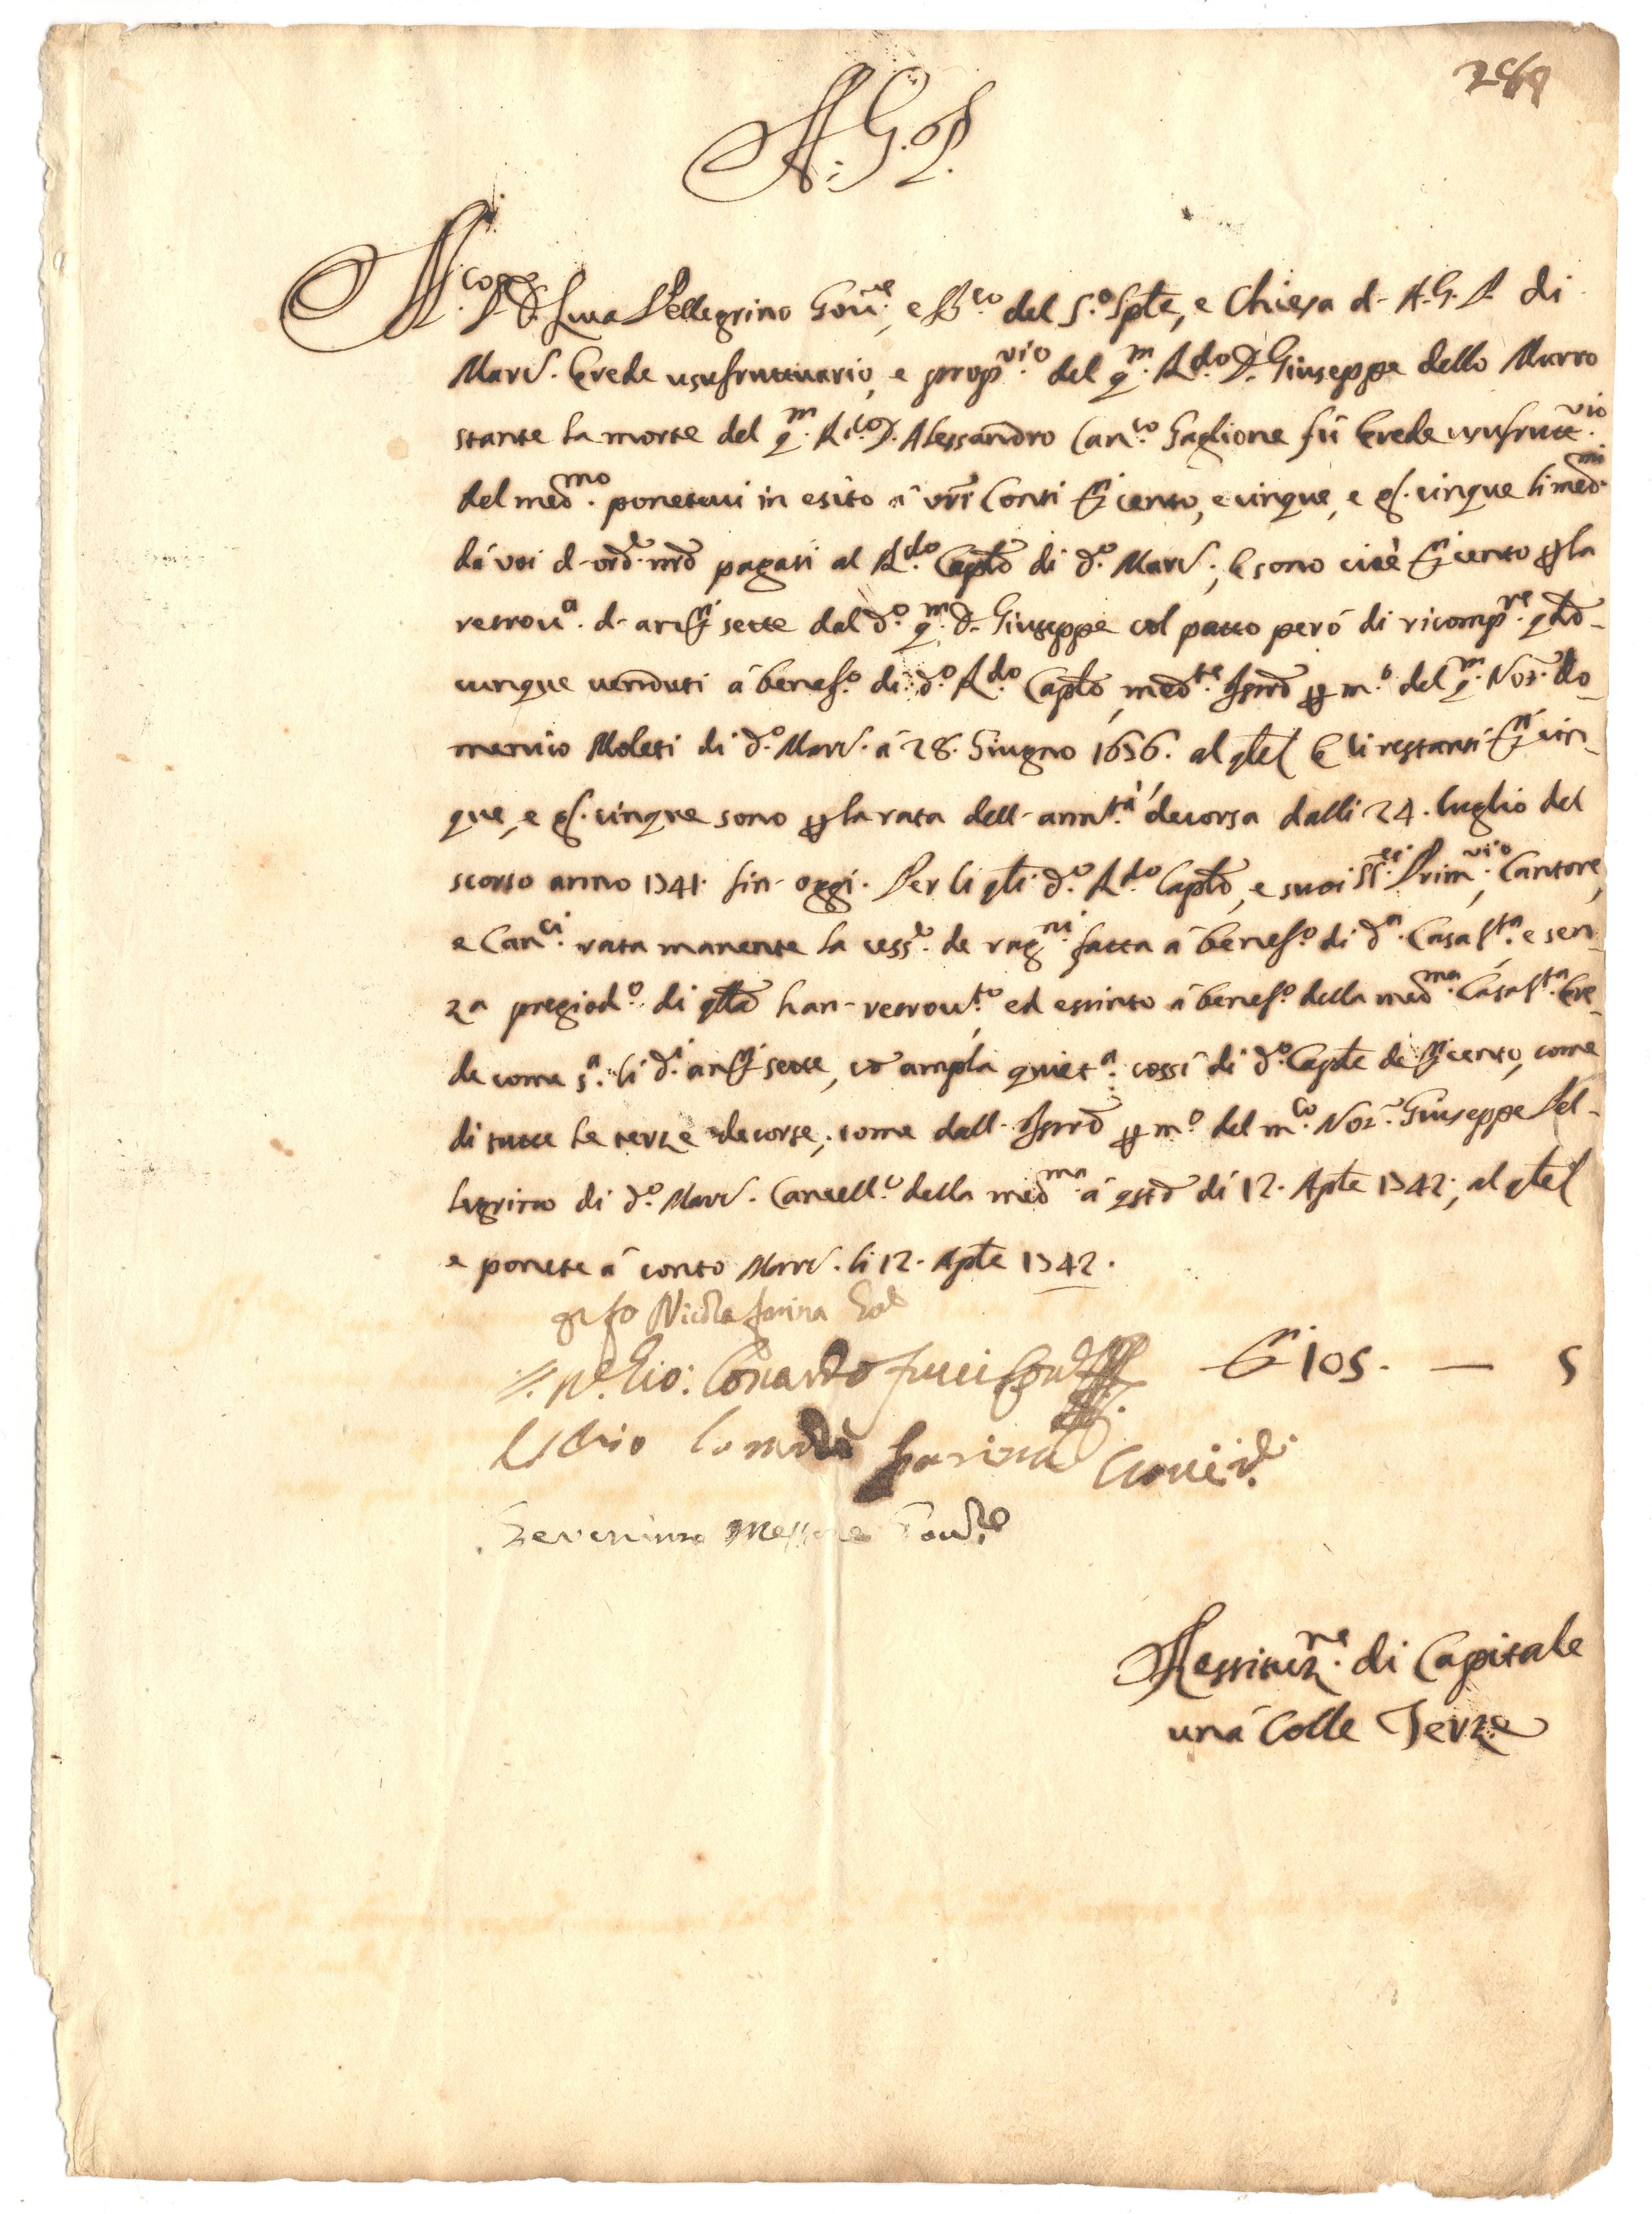 A. G. P.
M.co D. Luca Pellegrino Gov.re, e B.co del S.o Sple, e Chiesa d- A. G. P. di
Marc. Erede usufruttuario, e prop.rio del q.m R.do D. Giuseppe dello Murro
stante la morte del q.m R.do D. Alessandro Can.co Gaglione fù Erede usufrutt.rio
del med.mo ponetevi in esito á vri Conti D.i cento, e cinque, e g. cinque li med.mi
dá voi d- ord.e nro pagati al R.do Caplo di d.o Marc., E sono cioè D.i cento p la
retrov.a d- an. D.i sette dal d.o q.m D. Giuseppe col patto peró di ricomp.re qdo-
cunque vennduti á benef.o di d.o R.do Caplo, med.te Ismo p m.o del q.m Not. Do-
menico Moleti di d.o Marc. á 28. Giugno 1656. al qle E li restanti D.i cin-
que, e g. cinque sono p la rata dell- ann.tà decorsa dalli 24. luglio del
scorso anno 1741. sin- oggi. Per li qli d.o R.do Caplo, e suoi SS.ri Prim.rio, Cantore,
e Can.ci rata manente la cess.e de rag.ni fatta á benef.o di d.a Casa S.ta, e sen-
za pregiod.o di qlla han- retrov.to, ed estinto á benef.o della med.ma Casa S.ta Ere-
de come s.a li d.i an. D.i sette, co ampla quiet.a cossí di d.o Caple de D.i cento, come
di tutte le terze decorse, come dall- Ismo p m.o del m.co Not. Giuseppe Pel-
legrino di d.o Marc. Cancell.e della med.ma á qsto dí 12. Aple 1742., al qle
e ponete á conto Marc. li 12. Aple 1742.
Nicola Farina
D.i 105. — 5
Gio: Lonardo
Farina
Severino Messore Gov.re
Restituz.ne di Capitale
una Colle Terze